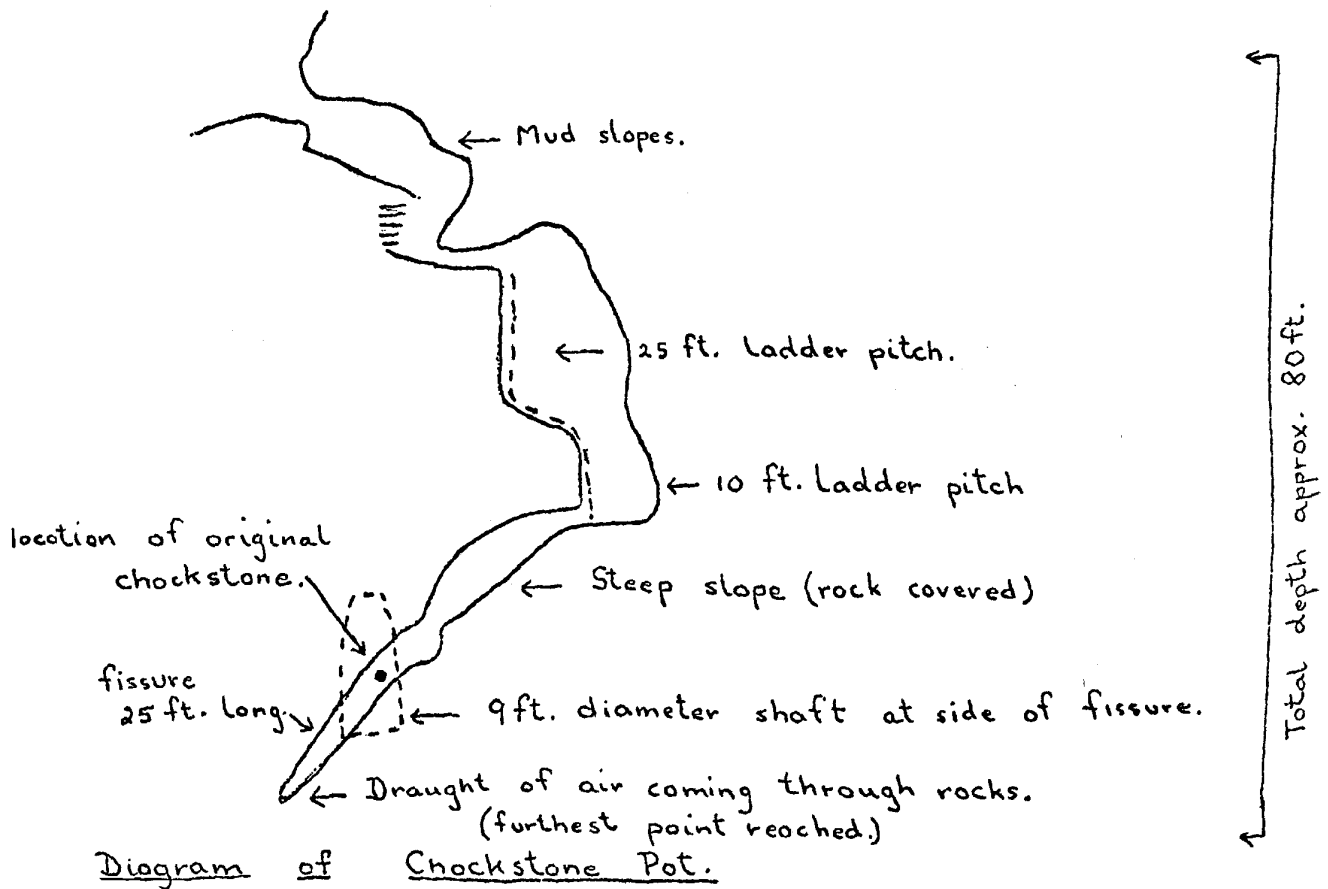 Mud slopes.
25 ft. Ladder pitch.
10 ft. Ladder pitch
location of original
chockstone.
Steep slope (rock covered)
fissure
25 ft. long.
9ft. diameter shaft at side of fissure.
Draught of air coming through rocks.
(furthest point reached.)
Diagram of Chockstone Pot.
Total depth approx. 80ft.